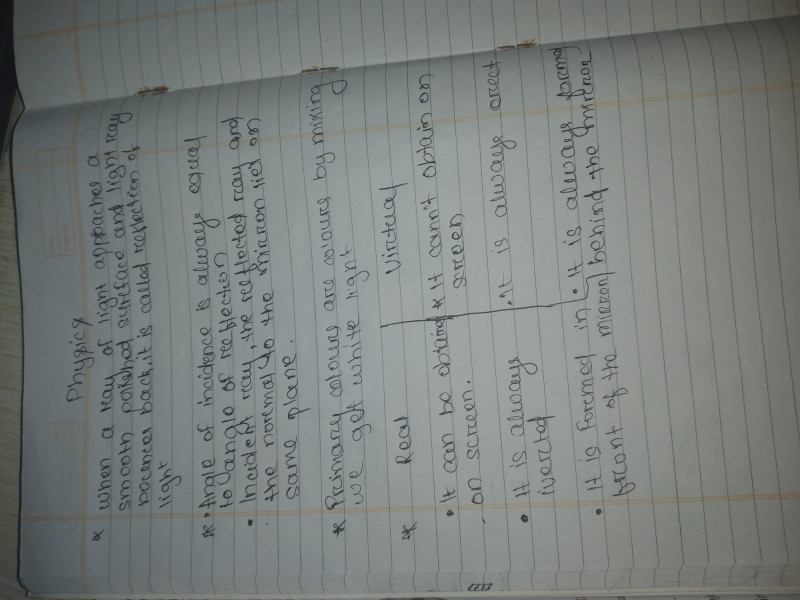 Physics
* When a ray of light approaches a
smooth polished surface and light ray
bounces back, it is called reflection of
light
* • Angle of incidence is always equal
to angle of reflection
• Incident ray, the reflected ray and
the normal to the mirror lies on
same plane.
* Primary colours are colours by mixing
we get white light
* Real Virtual
• It can be obtain * It cann't obtain on
on screen. screen
• It is always • It is always erect
iverted
• It is formed in • It is always formed
front of the mirror behind the mirror